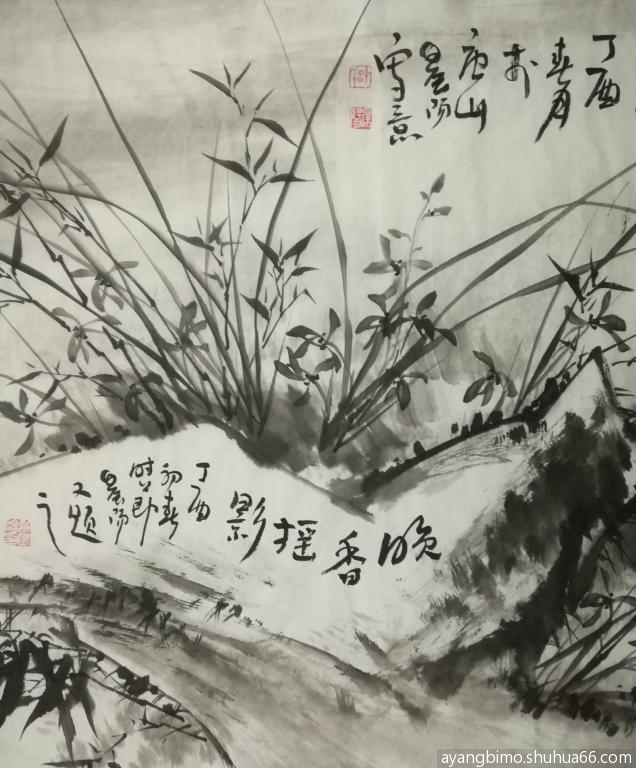 丁酉
春月
於
唐山
晨阳
写意
晚香摇影
丁酉
初春
时节
晨阳
又题
之
ayangbimo.shuhua66.com